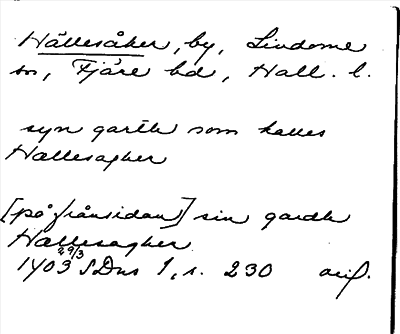 Hällesåker, by, Lindome
sn, Fjäre hd, Hall. l.
syn garth som kalles
Hællesagher
[på frånsidan] sin gardh
Hællesagher
1403 29/3 SDns 1, s. 230 orif.